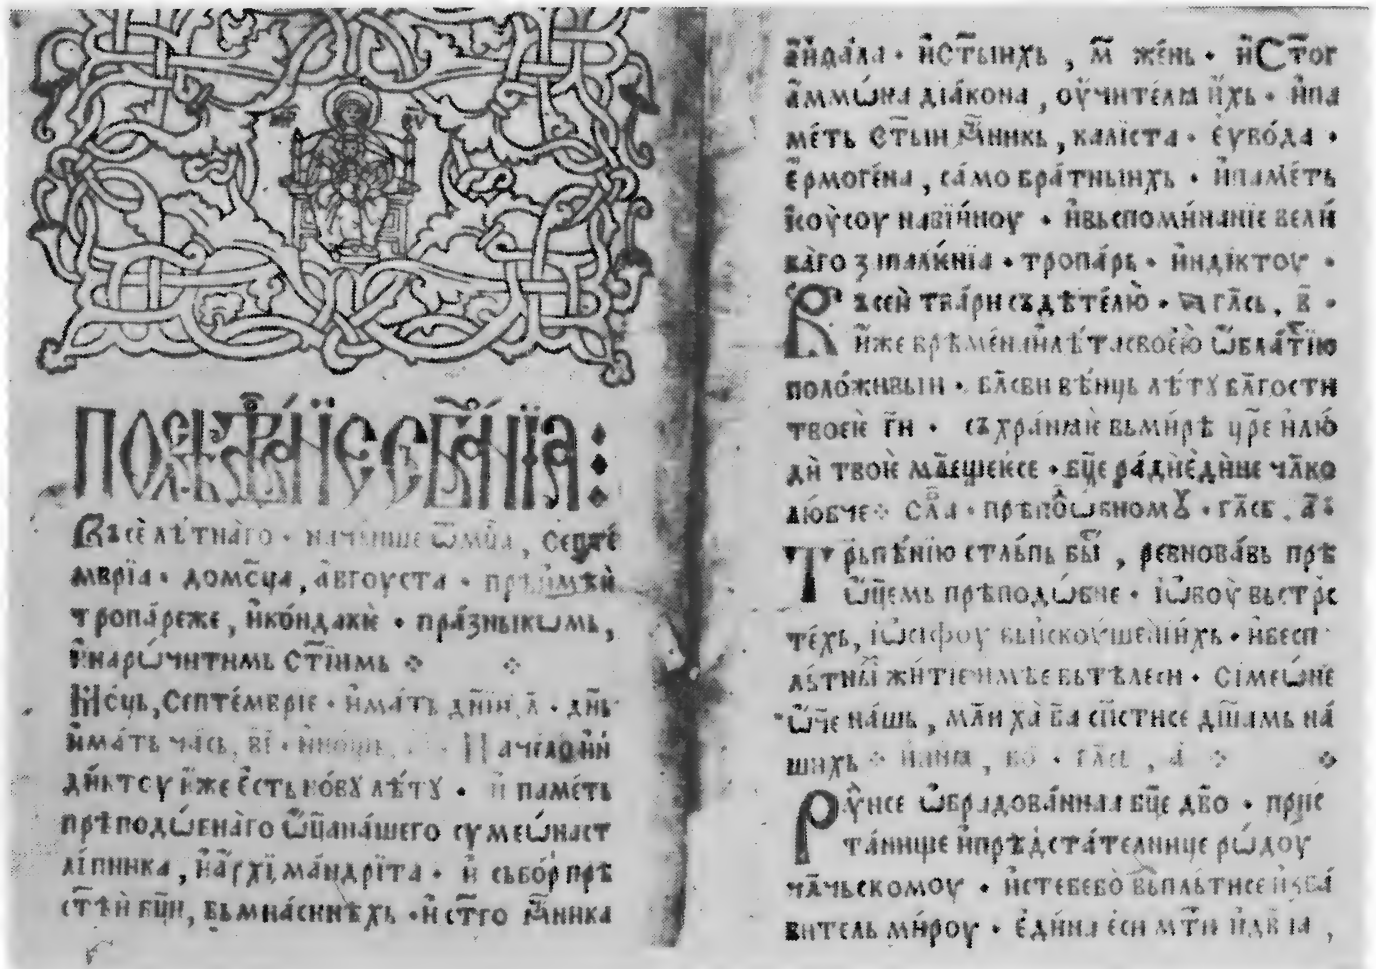 ПОСЛѢДОВАНЇЕ СЪБРАНЇА:
Въсѐ лѣ́тна́го · наче́нше ѿмц҃а, Септе́
мврїа · домⷭ҇ца, а҆́вгоуста · прѣи҆́мѣй
тропа́реже, и҆ко́ндакїе · пра́зныкѡмь,
и҆нарѡ́читимь ст҃ї́имь ⁘ ⁘
Мⷭ҇ць, септе́мврїе · и҆́мать дн҃їи, л҃ · дн҃ь
и҆́мать ча́сь, в҃і · и҆но́щь, Начело и҆н
ди́ктоу и҆́же є҆́сть но́вꙋ лѣ́тꙋ · и҆ паме́ть
прѣподѡ́бна́го ѿц҃ана́шего сумеѡ́наст
лі́пника, и҆а҆́рхїма́ндрїта · и҆ сьбо́р прѣ
ст҃ѣй бц҃и, вьмиа́синѣхь · и҆ ст҃го мⷱ҇ника
а҆и҆да́ла · и҆ст҃ыихь, м҃ же́нь · и҆Ст҃ог
а҆ммѡ́на дїа́кона, оу҆чите́лꙗ и҆́хь · и҆па
ме́ть ст҃ыи мⷱ҇никь, калі́ста · є҆уво́да ·
є҆рмоге́на, са́мобра́тныихь · и҆паме́ть
і҆соу̀соу навїи́ноу · и҆вьспоми́нанїе вели́
ка́го запале́нїа · тропа́рь · и҆ндїктоу ·
Въсей тва́рисъдѣте́лю̀ · гла́сь, в҃ ·
и҆́же врѣме́наи҆лѣ́тасвоею̀ ѡ҆́бластїю
поло́живыи · бл҃свивѣ́нць лѣ́тꙋ бл҃гости
твоеѐ гн҃и · съхра́нꙗѐ вьми́рѣ цр҃е и҆лю́
дѝ твоѐ мл҃ещеисе · бц҃е ра́диѐди́не чл҃ко
лю́бче ⁘ сла́ · прѣпоⷣѡ́бномꙋ · гла́сь, а҃ ·
Трьпѣ́нїю стльпь бы́, ревнова́вь прѣ
ѿц҃емь прѣподѡ́бне · і҆ѡвоу̀ вьстрⷭ҇
те́хь, і҆ѡ́сифоу вьи҆скоу́шенїихь · и҆бесп
льтны́ жи́тїеи҆мѣе вьтѣлеси · Сімеѡ́не
ѿч҃е на́шь, мл҃и ха̀ ба҃ сп҃стисе дш҃амь на́
шихь ⁘ и҆ни҃ꙗ, бо҃ · гла́сь, а҃ ⁘ ⁘
Ра́ꙋисе ѡ҆бра́дова́ннаа бц҃е дв҃о · при́с
та́нище и҆прѣ́дста́телнице рѡ́доу
чл҃чьскомоу · и҆стебебо̀ вьпльтисеи҆зба́
витель ми́роу · є҆ди́на є҆си мт҃и и҆дв҃аа,